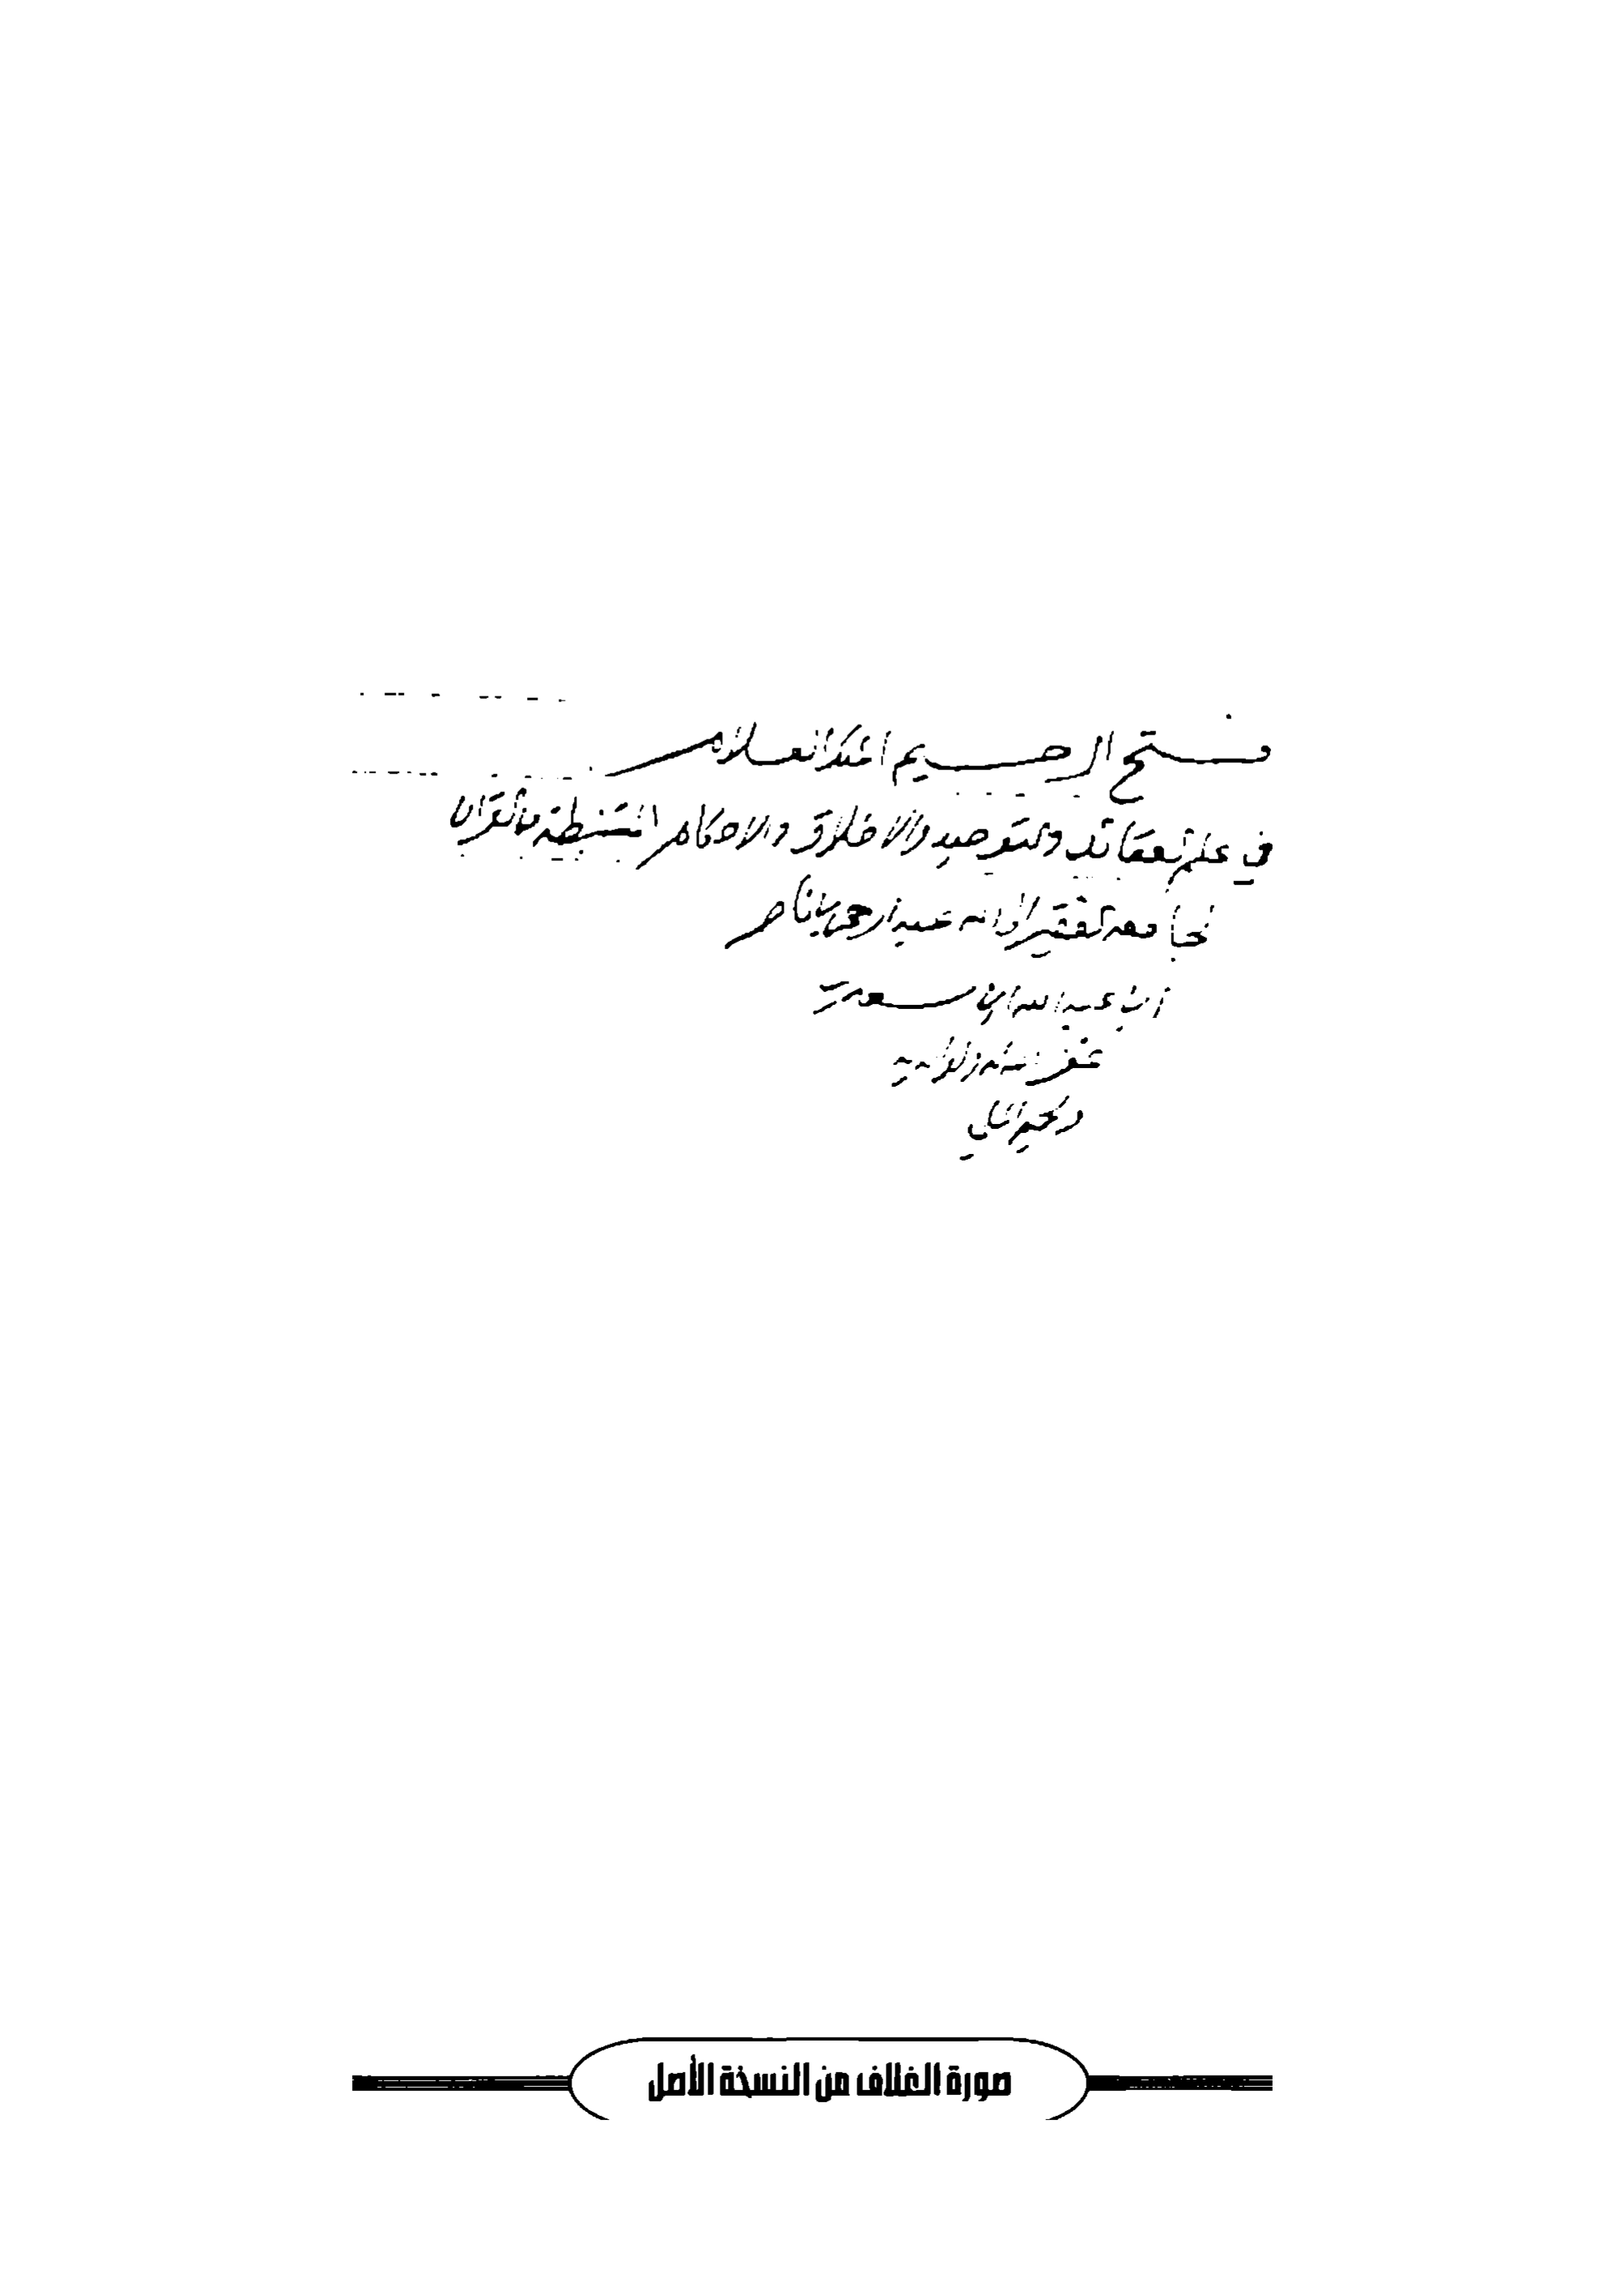 فتح الرحيم الملك العلام
في علم العقائد والتوحيد والاخلاق والاحكام المستنبطة من القرآن
لجامعه الفقير الى الله عبد الرحمن بن ناصر
ابن عبد الله ابن سعدي
غفر الله له ولوالديه
ولجميع المسلمين
صورة الغلاف من النسخة الأصل